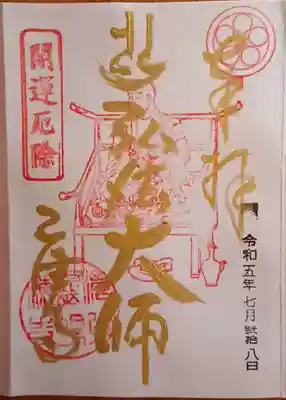 奉拝
令和五年 七月 弐拾八日
弘法大師
開運厄除